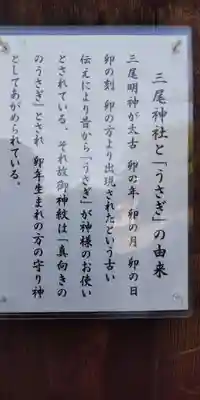 三尾神社と「うさぎ」の由来
三尾明神が太古 卯の年 卯の月 卯の日
卯の刻 卯の方より出現されたという古い
伝えにより昔から「うさぎ」が神様のお使い
とされている。それ故御神紋は「真向きの
のうさぎ」とされ 卯年生まれの方の守り神
としてあがめられている。